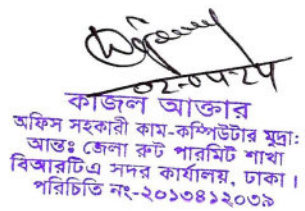 ০২-০৭-২৫
কাজল আক্তার
অফিস সহকারী কাম-কম্পিউটার মুদ্রা:
আন্তঃ জেলা রুট পারমিট শাখা
বিআরটিএ সদর কার্যালয়, ঢাকা।
পরিচিতি নং-২০১৩৪১২০৩৯